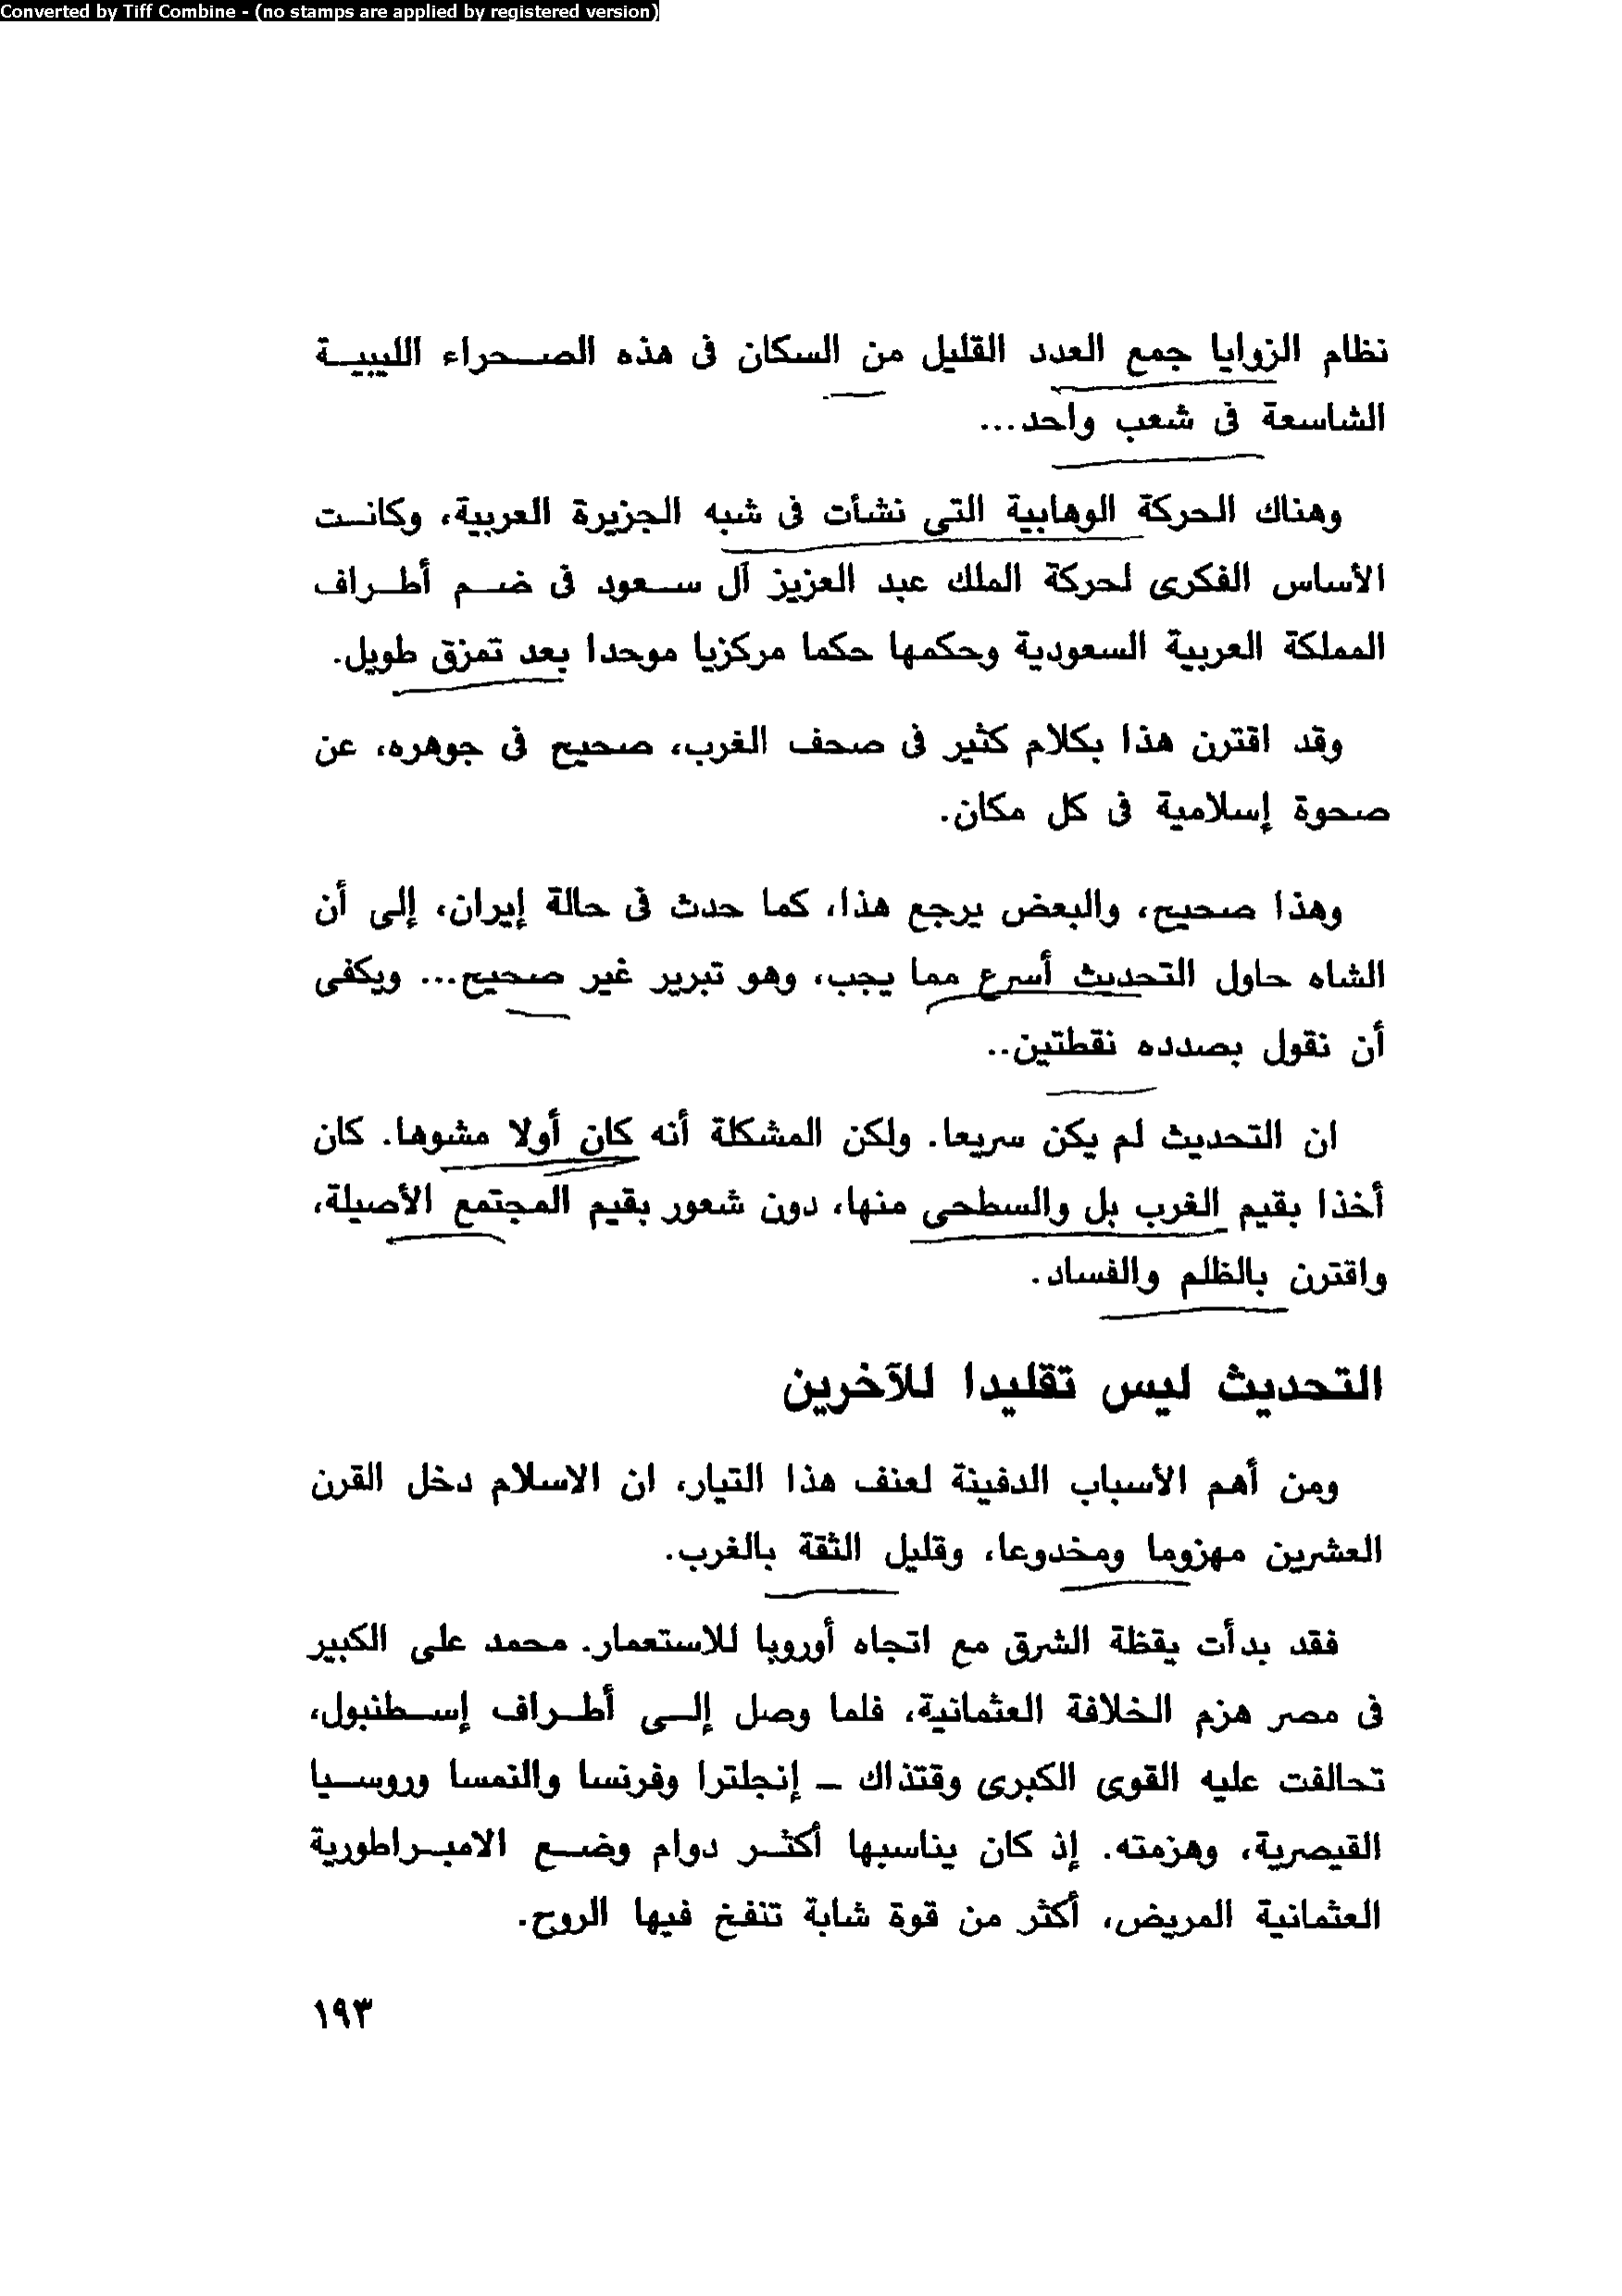 Converted by Tiff Combine - (no stamps are applied by registered version)
نظام الزوايا جمع العدد القليل من السكان فى هذه الصحراء الليبية
الشاسعة فى شعب واحد...
وهناك الحركة الوهابية التى نشأت فى شبه الجزيرة العربية، وكانت
الأساس الفكرى لحركة الملك عبد العزيز آل سعود فى ضم أطراف
المملكة العربية السعودية وحكمها حكما مركزيا موحدا بعد تمزق طويل.
وقد اقترن هذا بكلام كثير فى صحف الغرب، صحيح فى جوهره، عن
صحوة إسلامية فى كل مكان.
وهذا صحيح، والبعض يرجع هذا، كما حدث فى حالة إيران، إلى أن
الشاه حاول التحديث أسرع مما يجب، وهو تبرير غير صحيح... ويكفى
أن نقول بصدده نقطتين..
ان التحديث لم يكن سريعا. ولكن المشكلة أنه كان أولا مشوها. كان
أخذا بقيم الغرب بل والسطحى منها، دون شعور بقيم المجتمع الأصيلة،
واقترن بالظلم والفساد.
التحديث ليس تقليدا للآخرين
ومن أهم الأسباب الدفينة لعنف هذا التيار، ان الاسلام دخل القرن
العشرين مهزوما ومخدوعا، وقليل الثقة بالغرب.
فقد بدأت يقظة الشرق مع اتجاه أوروبا للاستعمار. محمد على الكبير
فى مصر هزم الخلافة العثمانية، فلما وصل إلى أطراف إسطنبول،
تحالفت عليه القوى الكبرى وقتذاك – إنجلترا وفرنسا والنمسا وروسيا
القيصرية، وهزمته. إذ كان يناسبها أكثر دوام وضع الامبراطورية
العثمانية المريض، أكثر من قوة شابة تنفخ فيها الروح.
١٩٣